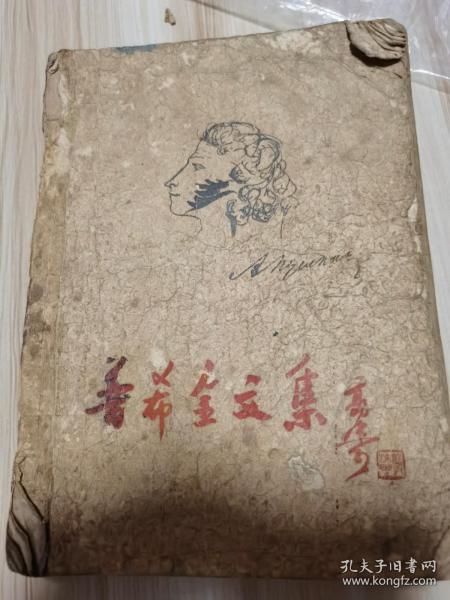 А Пушкин
普希金文集
孔夫子旧书网
www.kongfz.com